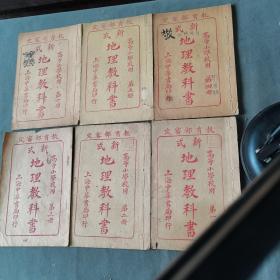 教育部審定
新式
地理教科書
高等小學校用
上海中華書局印行
教育部審定
新式
地理教科書
高等小學校用 第五冊
上海中華書局印行
教育部審定
新式
地理教科書
高等小學校用 第四冊
上海中華書局印行
教育部審定
新式
地理教科書
高等小學校用 第三冊
上海中華書局印行
教育部審定
新式
地理教科書
高等小學校用 第二冊
上海中華書局印行
教育部審定
新式
地理教科書
高等小學校用 第
上海中華書局印行